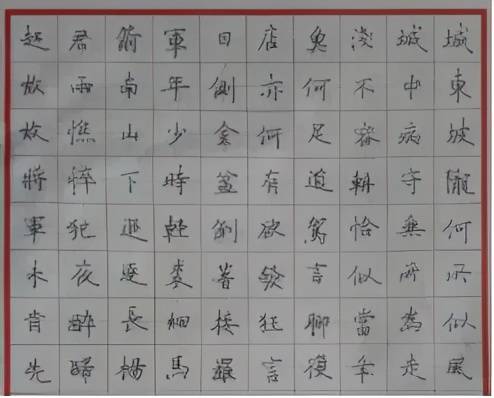 城東坡隴何所似風
城中病守無所為走
淺不容輈恰似當年
魚何足道駕言聊復
店亦何有欲發狂言
日側金盆倒着接䍦
軍年少時輕裘細馬
箭南山下追逐長楊
君兩憔悴犯夜醉歸
起故故將軍未肯先